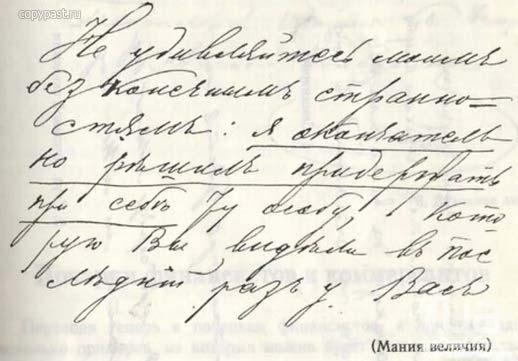 copypast.ru
Не удивляйтесь моимъ
безконечнымъ странно-
стямъ: я окончатель
но рѣшилъ придержать
при себѣ ту особу, кото
рую Вы видѣли въ пос
лѣдній разъ у Васъ
(Мания величия)